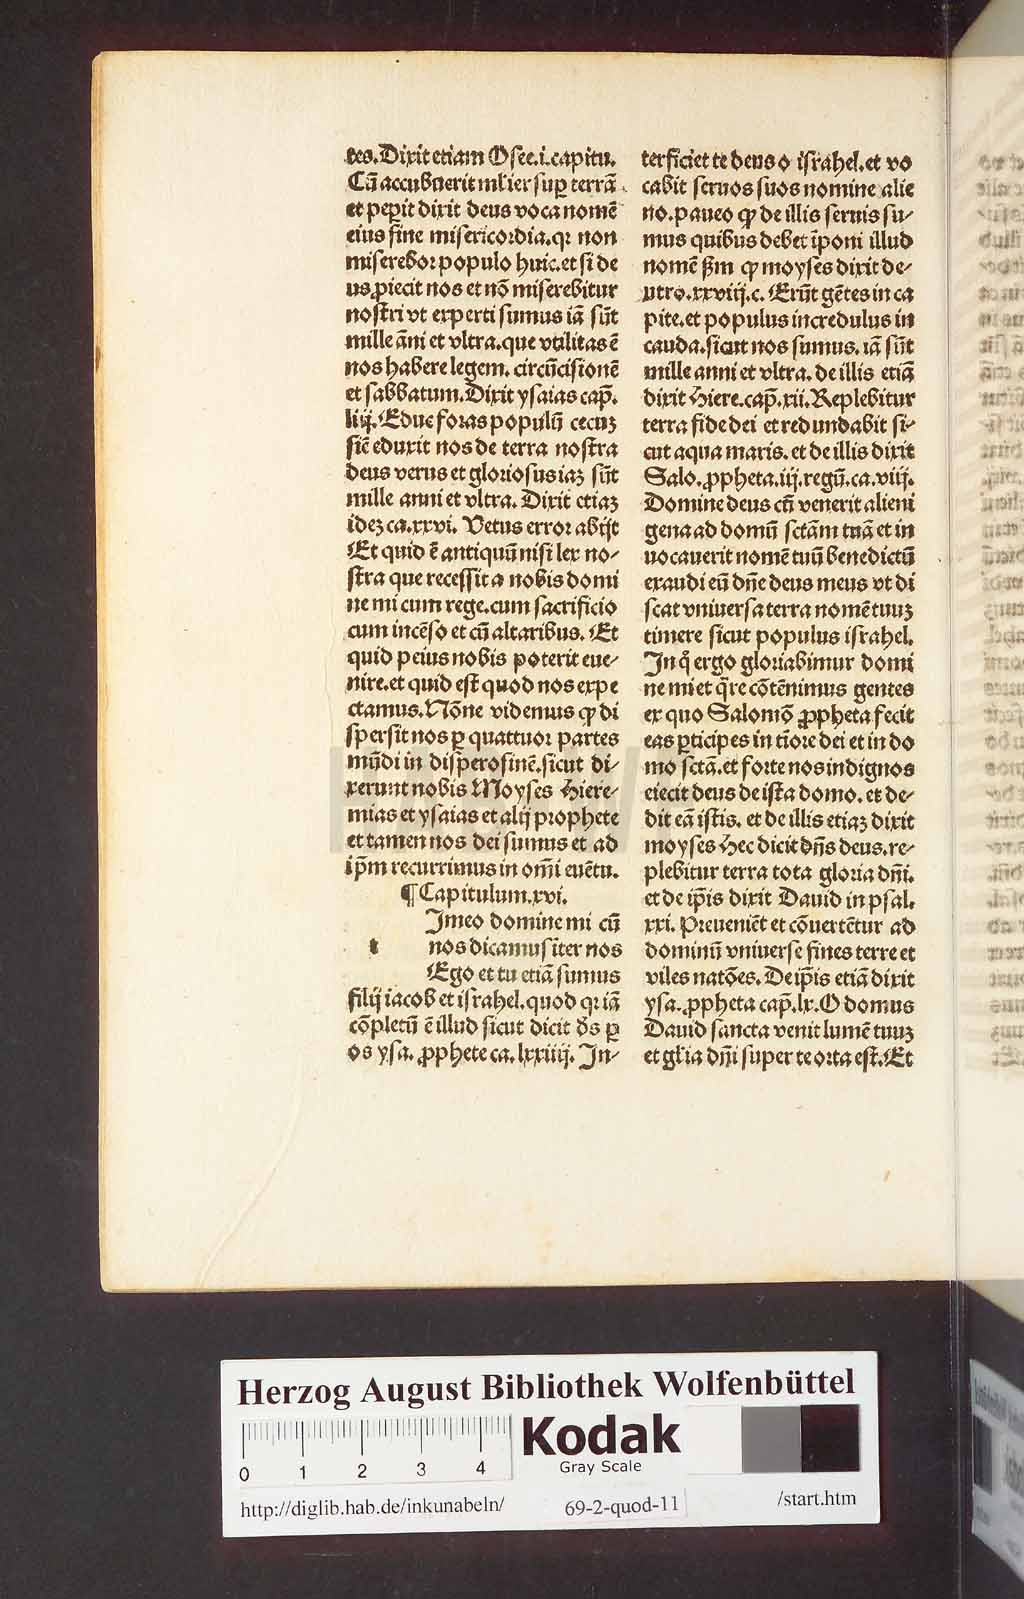 tes. Dixit etiam Osee.i.capitu.
Cū accubuerit mĺier sup terrā
et peperit dixit deus voca nomē
eius sine misericordia.qꝛ non
miserebor populo huic.et si de
us ꝓiecit nos et nō miserebitur
nostri vt experti sumus iā sūt
mille āni et vltra.que vtilitas ē
nos habere legem. circūcisionē
et sabbatum. Dixit ysaias cap̄.
liij. Educ foras populū cecuꝫ
sic̄ eduxit nos de terra nostra
deus verus et gloriosus iaꝫ sūt
mille anni et vltra. Dixit etiaꝫ
ideꝫ ca.xxvi. Vetus error abijt
Et quid ē antiquū nisi lex no⸗
stra que recessit a nobis domi
ne mi cum rege.cum sacrificio
cum incēso et cū altaribus. Et
quid peius nobis poterit eue⸗
nire.et quid est quod nos expe
ctamus. Nōne videmus ꝙ di
spersit nos ꝑ quattuor partes
mūdi in dispersionē.sicut di⸗
xerunt nobis Moyses Hiere⸗
mias et ysaias et alij prophete
et tamen nos dei sumus et ad
ip̄m recurrimus in om̄i euētu.
¶ Capitulum.xvi.
t Imeo domine mi cū
nos dicamus īter nos
Ego et tu etiā sumus
filij iacob et israhel.quod qꝛ iā
cōpletū ē illud sicut dicit ds̄ ꝑ
os ysa. ꝓphete ca. lxxiiij. In⸗
terficiet te deus o israhel.et vo
cabit seruos suos nomine alie
no.paueo ꝙ de illis seruis su⸗
mus quibus debet īponi illud
nomē ẜm ꝙ moyses dixit de⸗
utro.xxviij.c. Erūt gētes in ca
pite.et populus incredulus in
cauda.sicut nos sumus. iā sūt
mille anni et vltra. de illis etiā
dixit Hiere.cap̄.xii. Replebitur
terra fide dei et redundabit si⸗
cut aqua maris. et de illis dixit
Salo. ꝓpheta.iij.regū.ca.viij.
Domine deus cū venerit alieni
gena ad domū sctām tuā et in
uocauerit nomē tuū benedictū
exaudi eū dn̄e deus meus vt di
scat vniuersa terra nomē tuuꝫ
timere sicut populus israhel.
In q̄ ergo gloriabimur domi
ne mi et q̄re cōtēnimus gentes
ex quo Salomō ꝓpheta fecit
eas ꝑticipes in tiōre dei et in do
mo sctā.et forte nos indignos
eiecit deus de ista domo. et de⸗
dit eā istis. et de illis etiaꝫ dixit
moyses Hec dicit dn̄s deus.re⸗
plebitur terra tota gloria dn̄i.
et de ip̄is dixit Dauid in psal.
xxi. Preueniēt et cōuertētur ad
dominū vniuerse fines terre et
viles natōes. De ip̄is etiā dixit
ysa. ꝓpheta cap̄.lx. O domus
Dauid sancta venit lumē tuuꝫ
et gl̄ia dn̄i super te orta est. Et
Herzog August Bibliothek Wolfenbüttel
0 1 2 3 4
Kodak
Gray Scale
http://diglib.hab.de/inkunabeln/ 69-2-quod-11 /start.htm